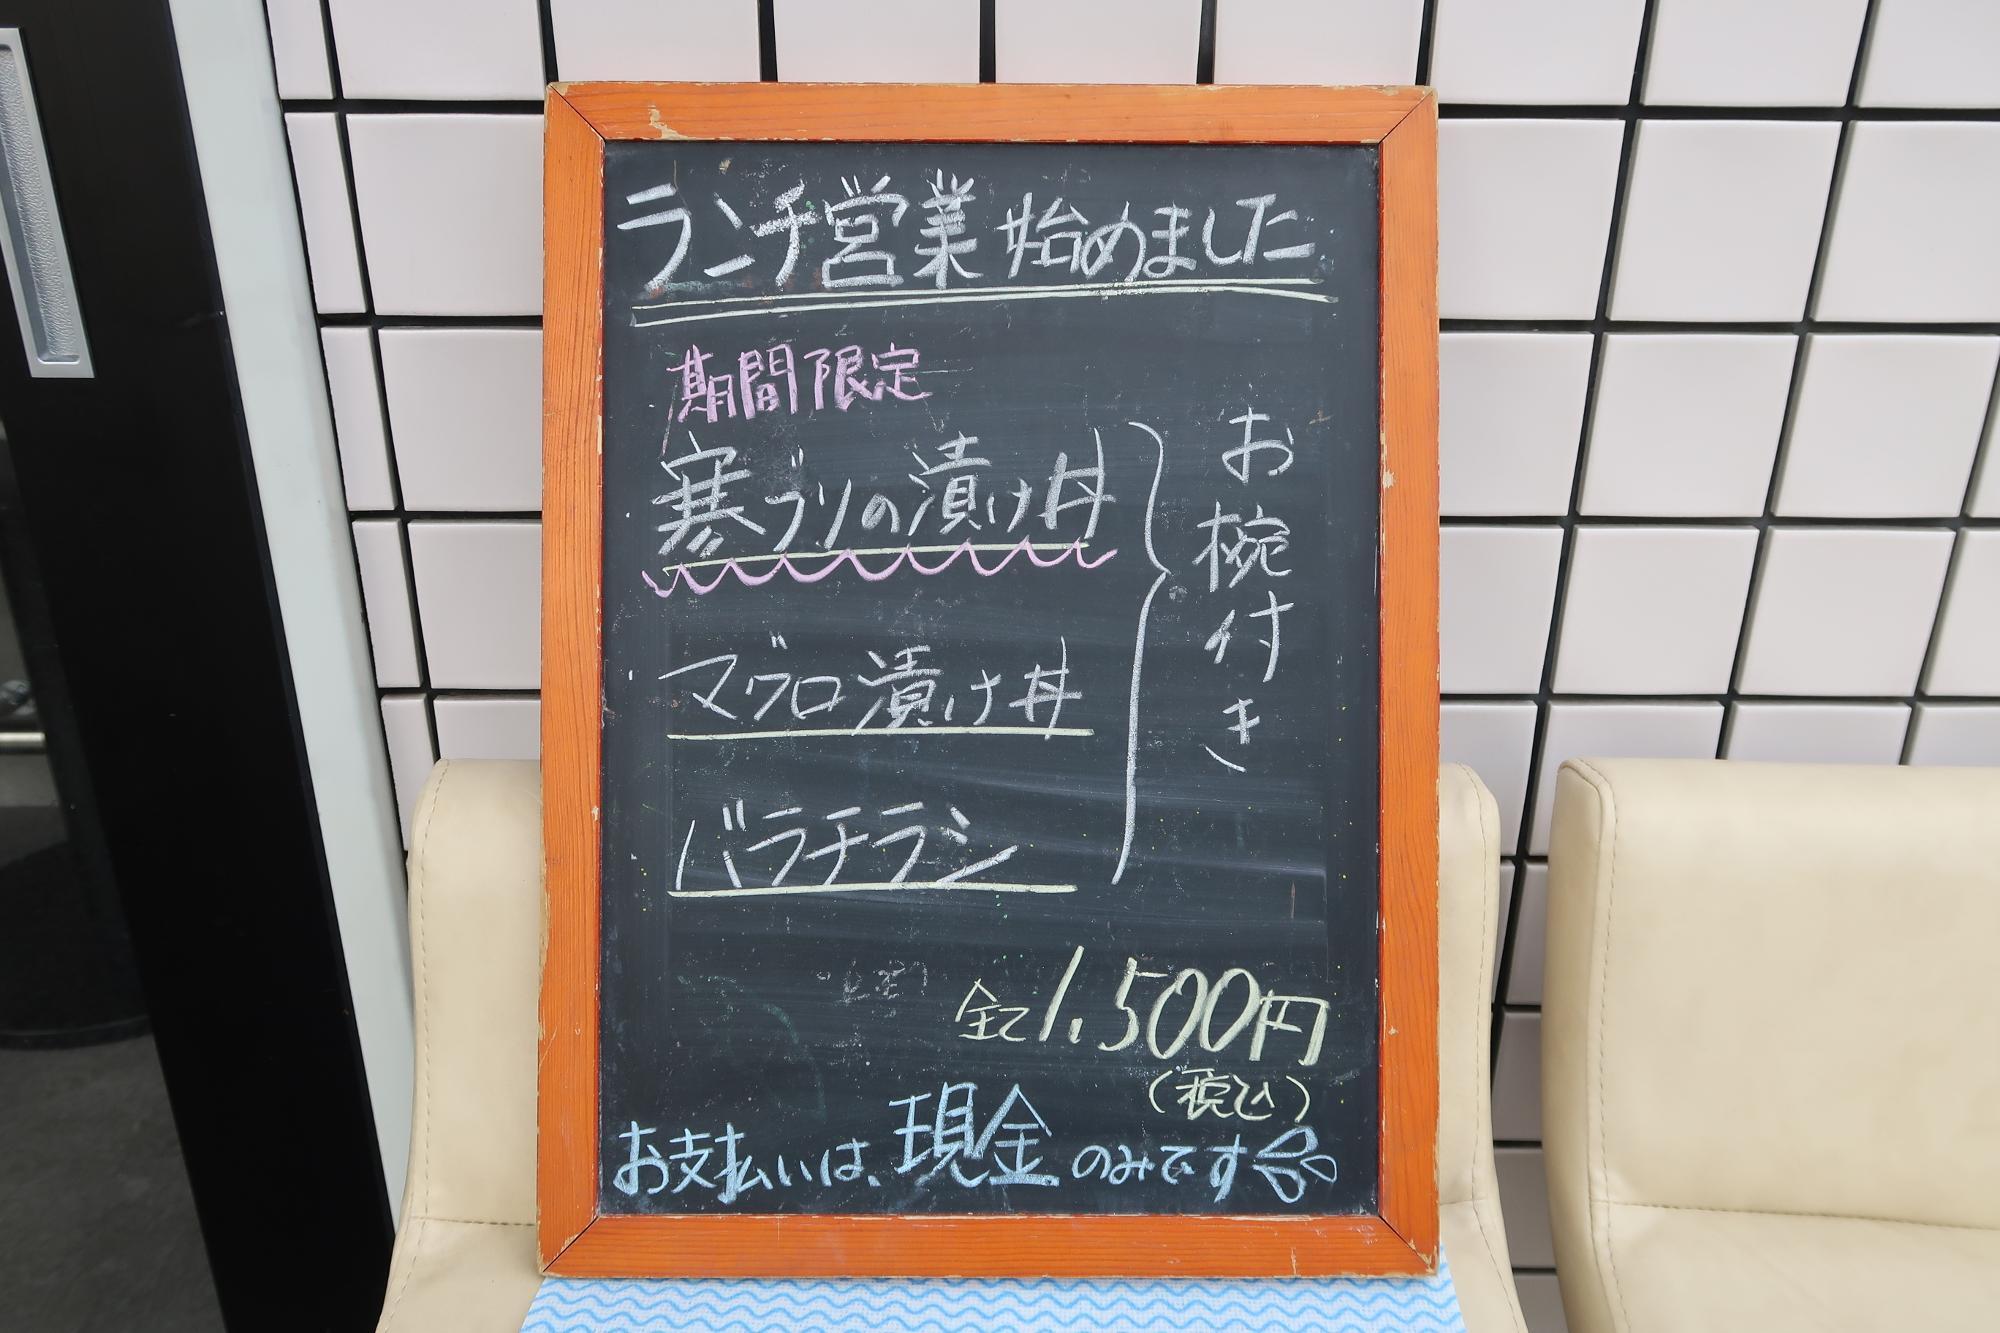 ランチ営業始めました
期間限定
寒ブリの漬け丼
マグロ漬け丼
バラチラシ
お椀付き
全て1,500円
(税込)
お支払いは、現金のみです